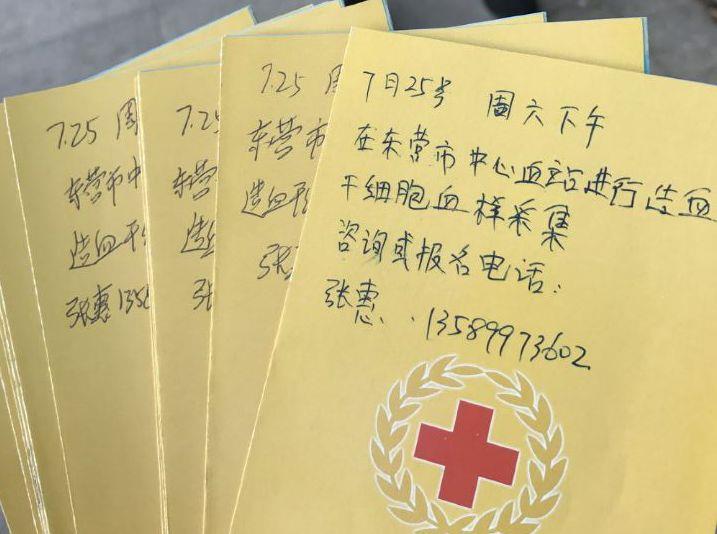 7.25 周
东营市中
造血干
张惠 1356
7.2
东营
造血
张
7.25 周
东营市
造血干
张
7月25号 周六下午
在东营市中心血站进行造血
干细胞血样采集
咨询或报名电话:
张惠. 13589973602